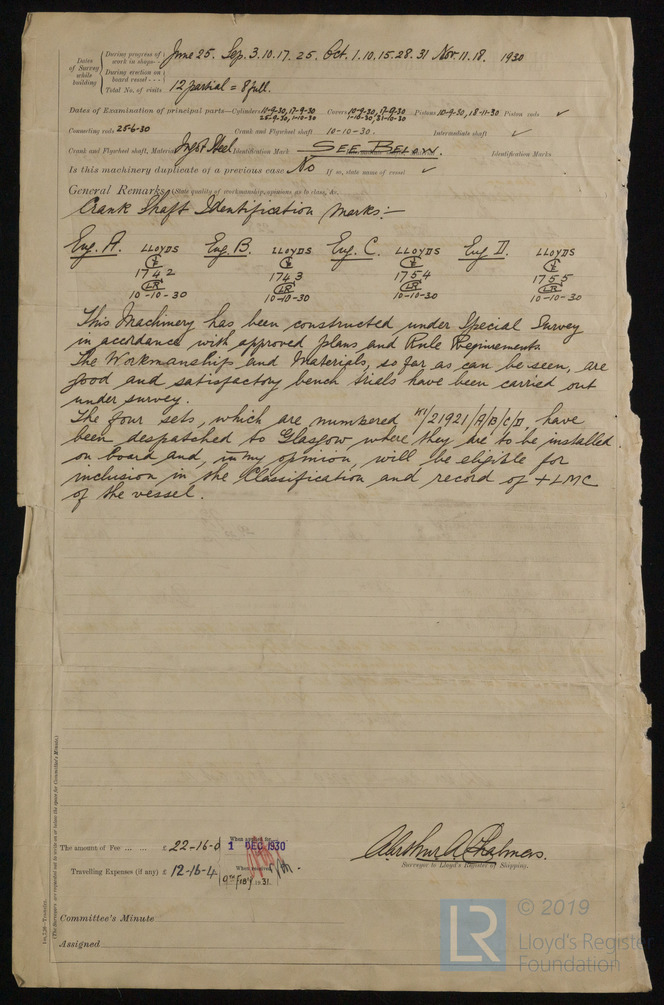 Dates of Survey while building
During progress of work in shops - June 25. Sep. 3. 10. 17. 25. Oct. 1. 10. 15. 28. 31 Nov. 11. 18. 1930
During erection on board vessel - - -
Total No. of visits 12 partial = 8 full.
Dates of Examination of principal parts—Cylinders 11-9-30, 17-9-30 25-9-30, 1-10-30 Covers 10-9-30, 17-9-30 1-10-30, 31-10-30 Pistons 10-9-30, 18-11-30 Piston rods ✓
Connecting rods 25-6-30 Crank and Flywheel shaft 10-10-30. Intermediate shaft ✓
Crank and Flywheel shaft, Material Ingot Steel Identification Mark SEE BELOW. Identification Marks
Is this machinery duplicate of a previous case No If so, state name of vessel ✓
General Remarks (State quality of workmanship, opinions as to class, &c.
Crank Shaft Identification Marks:-
Eng. A. LLOYDS Eng. B. LLOYDS Eng. C. LLOYDS Eng D. LLOYDS
1742 1743 1754 1755
LR LR LR LR
10-10-30 10-10-30 10-10-30 10-10-30
This Machinery has been constructed under Special Survey
in accordance with approved plans and Rule Requirements.
The Workmanship and Materials, so far as can be seen, are
good and satisfactory bench trials have been carried out
under survey.
The four sets, which are numbered /21921/A/B/C/D, have
been despatched to Glasgow where they are to be installed
on board and, in my opinion, will be eligible for
inclusion in the Classification and record of +LMC
of the vessel.
The amount of Fee ... ... £ 22-16-0 When applied for, 1 DEC 1930
Travelling Expenses (if any) £ 12-16-4 When received, 1931
Arthur A Chalmers.
Surveyor to Lloyd's Register of Shipping.
Committee's Minute
Assigned
(The Surveyors are requested not to write on or below the space for Committee's Minute.)
LR © 2019
Lloyd's Register
Foundation